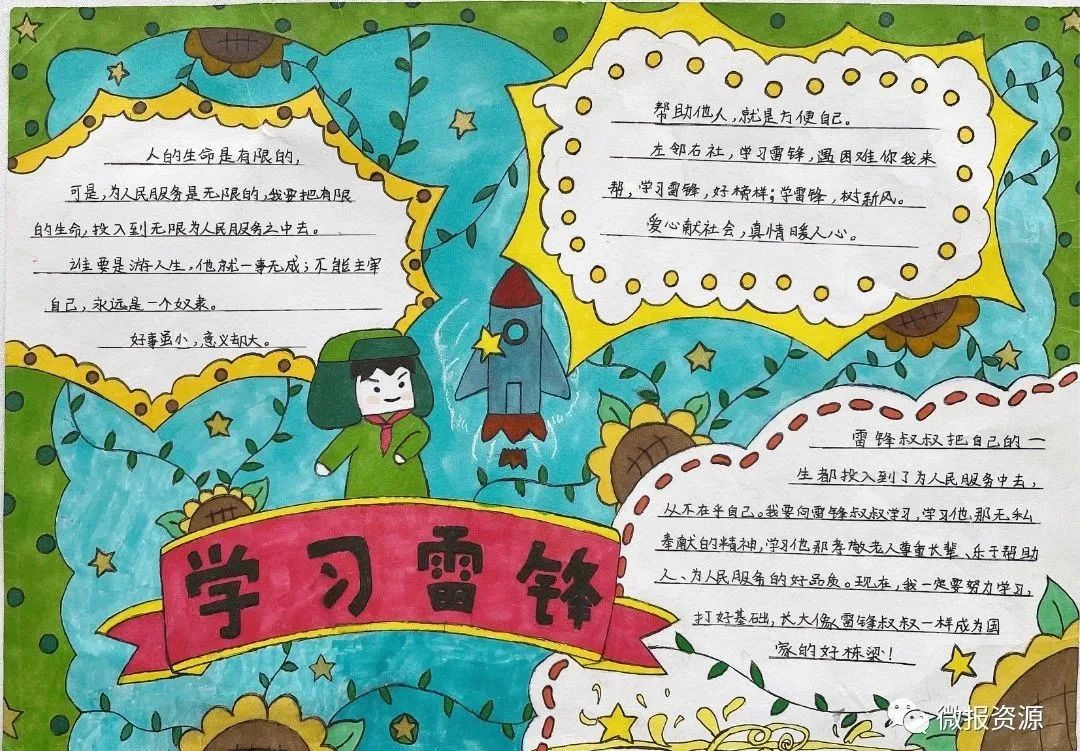 人的生命是有限的,
可是,为人民服务是无限的,我要把有限
的生命,投入到无限为人民服务之中去。
谁要是游人生,他就一事无成;不能主宰
自己,永远是一个奴来。
好事虽小,意义却大。
帮助他人,就是方便自己。
左邻右社,学习雷锋,遇困难你我来
帮,学习雷锋,好榜样;学雷锋,树新风。
爱心献社会,真情暖人心。
雷锋叔叔把自己的一
生都投入到了为人民服务中去,
从不在乎自己。我要向雷锋叔叔学习,学习他,那无私
奉献的精神,学习他那孝敬老人尊重长辈、乐于帮助
人、为人民服务的好品质。现在,我一定要努力学习,
打好基础,长大像雷锋叔叔一样成为国
家的好栋梁!
学习雷锋
微报资源